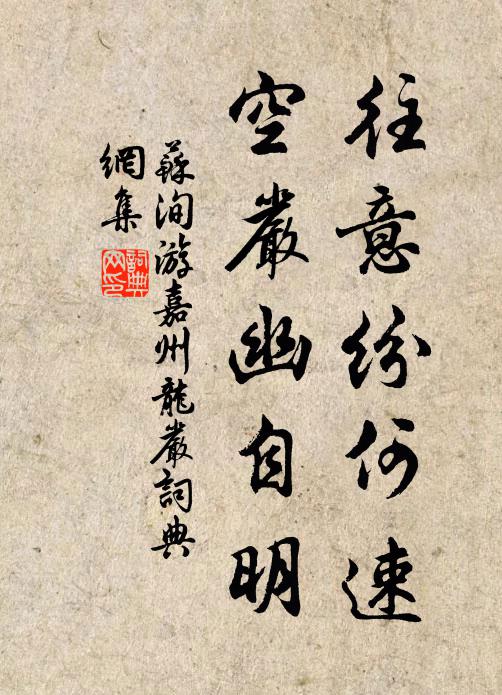 往意紛何速
空嚴幽自明
蘇洵游嘉州龍嚴詞典
網集
詞典網印